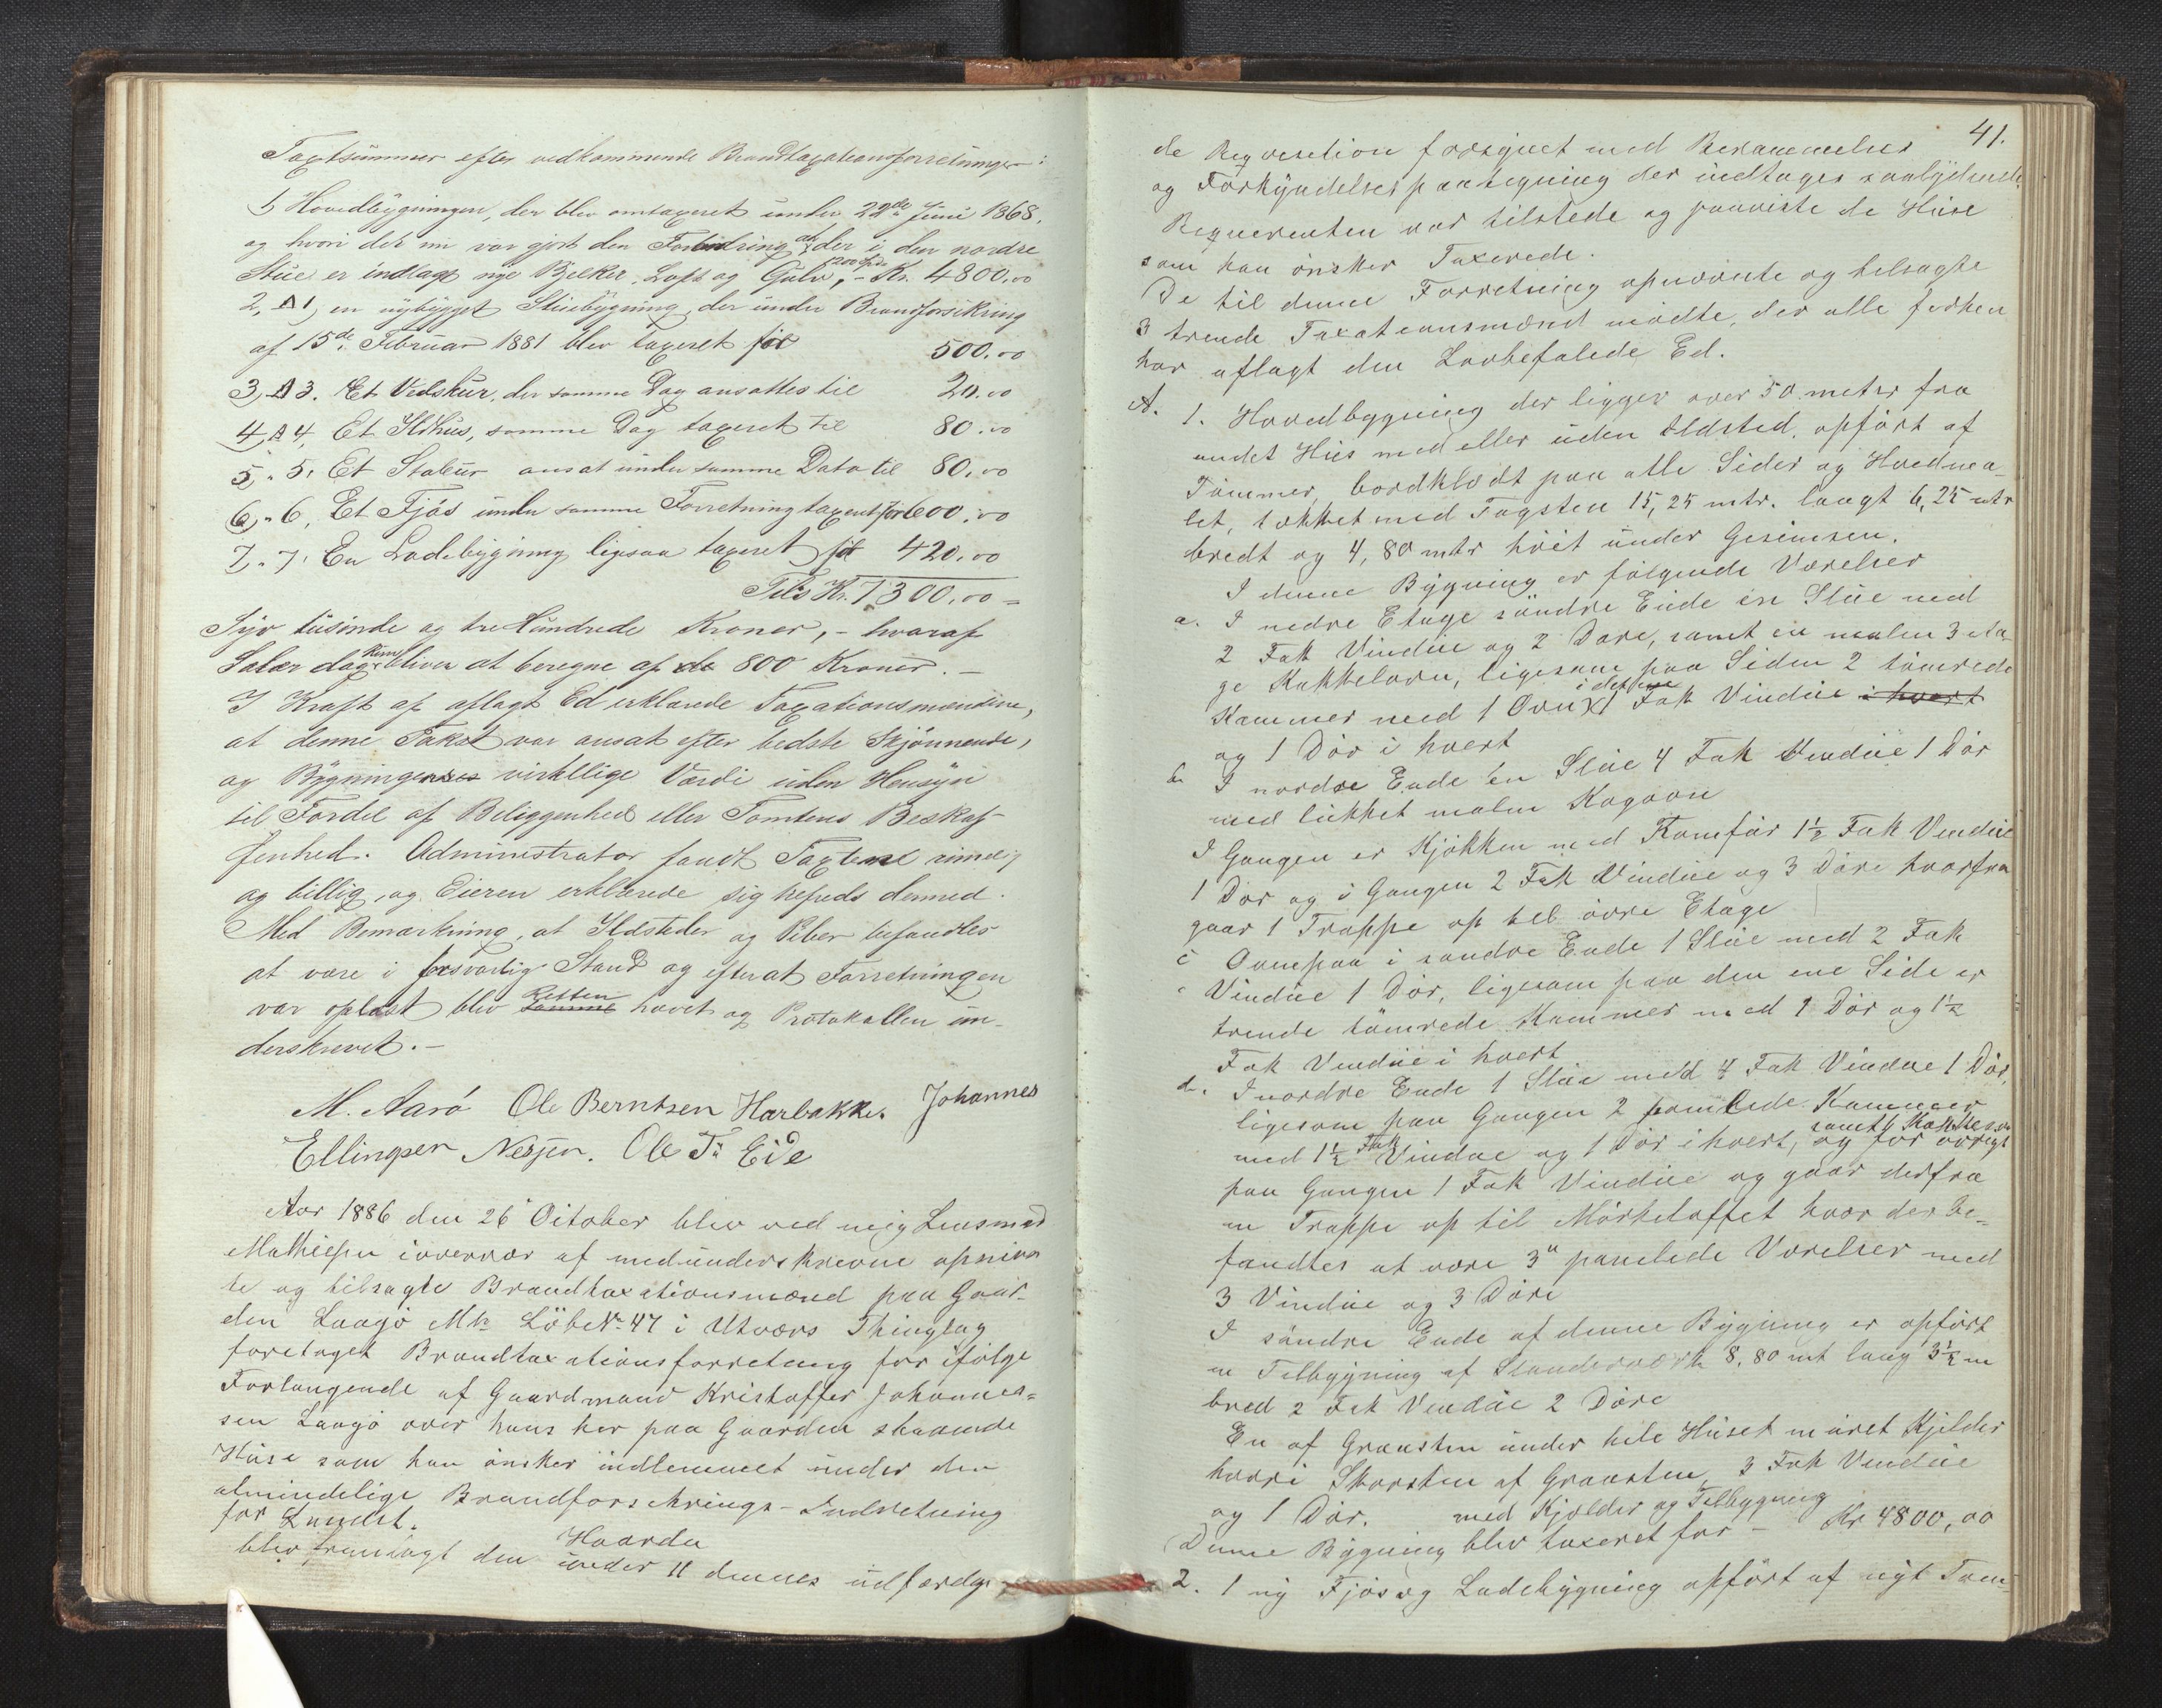 Taxtsummer efter vedkommende Brandtaxationsforretninger:
1) Hovedbygningen, der blev omtaxeret under 22de Juni 1868,
og hvori det nu var gjort den Forandring at der i den nordre
Stue er indlagt nye Bjelker, Loft og Gulv, - Kr. 4800.00
2, A 1, en nybygget Stuebygning, der under Brandforsikring
af 15de Februar 1881 blev taxeret for 500.00
3, A 3. Et Vedskur, der samme Dag ansattes til 20.00
4, A 4, Et Ildhus, samme Dag taxeret til 80.00
5, " 5, Et Stabur ansat under samme Dato til 80.00
6, " 6, Et Fjøs under samme Forretning taxeret for 600.00
7. " 7. En Ladebygning ligesaa taxeret for 420.00
Tils Kr. 7300.00 =
Syv tusinde og tre Hundrede Kroner, - hvoraf
Salær dog kun bliver at beregne af de 800 Kroner. -
I Kraft af aflagt Ed erklærede Taxationsmændene,
at denne Takst var ansat efter bedste Skjønnende,
og Bygningernes virkelige Værdi uden Hensyn
til Fordel af Beliggenhed eller Tomtens Beskaf-
fenhed. Administrator fandt Taxterne rimelig
og billig, og Eieren erklærede sig tilfreds dermed.
Med Bemærkning, at Ildsteder og Piber befandtes
at være i forsvarlig Stand og efterat Forretningen
var oplæst blev samme Retten hævet og Protokollen un-
derskrevet. -
M. Aarö Ole Berntsen Harbakke. Johannes
Ellingsen Nesjen. Ole Ts Eide
Aar 1886 den 26 October blev ved mig Lensmand
Mathiesen iovervær af medunderskrevne opnævn
te og tilsagte Brandtaxationsmænd paa Gaar-
den Langø Mtr Löbe No 47 i Utværs Thinglag
foretaget Brandtaxationsforretning for ifølge
Forlangende af Gaardmand Kristoffer Johannes=
sen Langø over hans her paa Gaarden staaende
Huse som han ønsker indlemmet under den
almindelige Brandforsikrings-Indretning
for Landet.
blev fremlagt den under 11 dennes udfærdige
41.
de Reqvisition forsynet med Berammelses
og Forkyndelsespaategning der indtages saalydende
Reqvirenten var tilstede og paaviste de Huse
som han ønsker Taxerede.
De til denne Forretning opnævnte og tilsagte
3 trende Taxationsmænd mødte, der alle forhen
har aflagt den Lovbefalede Ed.
A. 1. Hovedbygning der ligger over 50 meter fra
andet Hus med eller uden Ildsted, opført af
Tømmer, bordklædt paa alle Sider og Hvidma
let, tækket med Tagsten 15,25 mtr. langt 6,25 mtr
bredt og 4,80 mtr høit under Gesimsen.
I denne Bygning er følgende Værelser
a. I nedre Etage søndre Ende en Stue med
2 Fak Vindue og 2 Døre, samt en malm 3 eta
ge Kakkelovn, ligesom paa Siden 2 tømrede
Kammer med 1 Ovn i det ene 1 Fak Vindue i hvert
og 1 Dør i hvert
b. I nordre Ende en Stue 4 Fak Vindue 1 Dør
med lukket malm Kogovn
I Gangen er Kjøkken med Komfür 1½ Fak Vindue
1 Dør og i Gangen 2 Fak Vindue og 3 Døre hvorfra
gaar 1 Trappe op til øvre Etage
c Ovenpaa i søndre Ende 1 Stue med 2 Fak
Vindue 1 Dør, ligesom paa den ene Side er
trende tømrede Kammer med 1 Dør og 1½
Fak Vindue i hvert
d. I nordre Ende 1 Stue med 4 Fak Vindue 1 Dør,
ligesom paa Gangen 2 panelede Kammer
med 1½ Fak Vindue og 1 Dør i hvert, samt 1 Kakkelovn og for øvrigt
paa Gangen 1 Fak Vindue og gaar derfra
en Trappe op til Mørkeloftet hvor der be-
fandtes at være 3" panelede Værelser med
3 Vindue og 3 Døre
I søndre Ende af denne Bygning er opført
en Tilbygning af Standerværk 8,80 mt lang 3½ m
bred 2 Fak Vindue 2 Døre
En af Graasten under hele Huset muret Kjelder
hvori Skorsten af Graasten, 3 Fak Vindue
og 1 Dør. med Kjælder og Tilbygning
Denne Bygning blev taxeret for - Kr 4800,00
2. 1 ny Fjøs og Ladebygning opført af nyt Tøm-